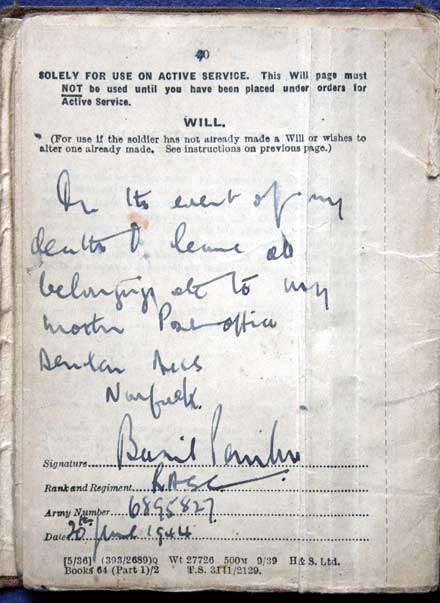 SOLELY FOR USE ON ACTIVE SERVICE. This Will page must
NOT be used until you have been placed under orders for
Active Service.
WILL.
(For use if the soldier has not already made a Will or wishes to
alter one already made. See instructions on previous page.)
In the event of my
death I leave all
belongings etc to my
mother Post office
Norfolk.
Signature Basil
Rank and Regiment RASC
Army Number 6895827
Date 20th 1944
[5/36] (393/2689)Q Wt 27726 500M 9/39 H & S. Ltd.
Books 64 (Part 1)/2 T.S. 3141/2129.